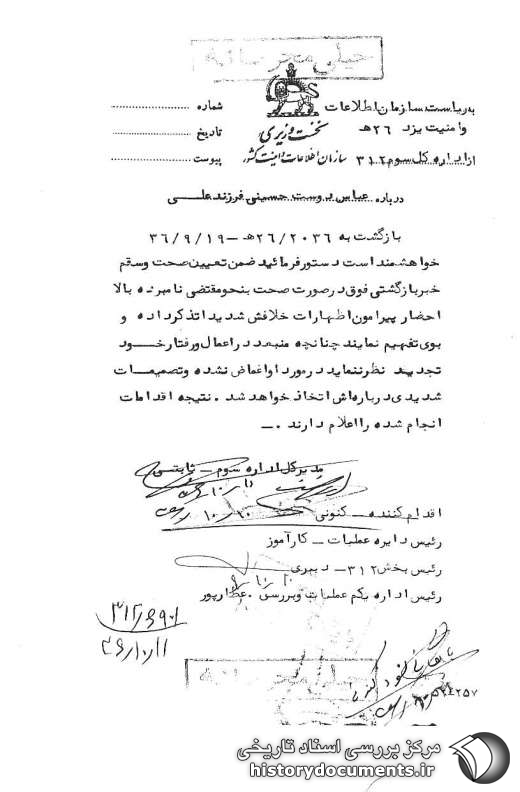 خیلی محرمانه
به ریاست سازمان اطلاعات
و امنیت یزد ۲۶ هـ
از اداره کل سوم ۳۱۲
نخست وزیری
سازمان اطلاعات و امنیت کشور
شماره
تاریخ
پیوست
درباره عباس دوست حسینی فرزند علی
بازگشت به ۲۶/۲۰۳۶هـ – ۳۶/۹/۱۹
خواهشمند است دستور فرمائید ضمن تعیین صحت و سقم
خبر بازگشتی فوق در صورت صحت بنحو مقتضی نامبرده بالا
احضار پیرامون اظهارات خلافش شدیدا تذکر داده و
بوی تفهیم نمایند چنانچه منبعد در اعمال و رفتار خود
تجدید نظر ننماید در مورد او اغماض نشده و تصمیمات
شدیدی درباره اش اتخاذ خواهد شد . نتیجه اقدامات
انجام شده را اعلام دارند . –
مدیر کل اداره سوم – ثابتی
اقدام کننده – کنونی
رئیس دایره عملیات – کارآموز
رئیس بخش ۳۱۲ – دبیری
رئیس اداره یکم عملیات و بررسی . عطارپور
۳۶/۱۰/۱۱
خیلی محرمانه
مرکز بررسی اسناد تاریخی
historydocuments.ir